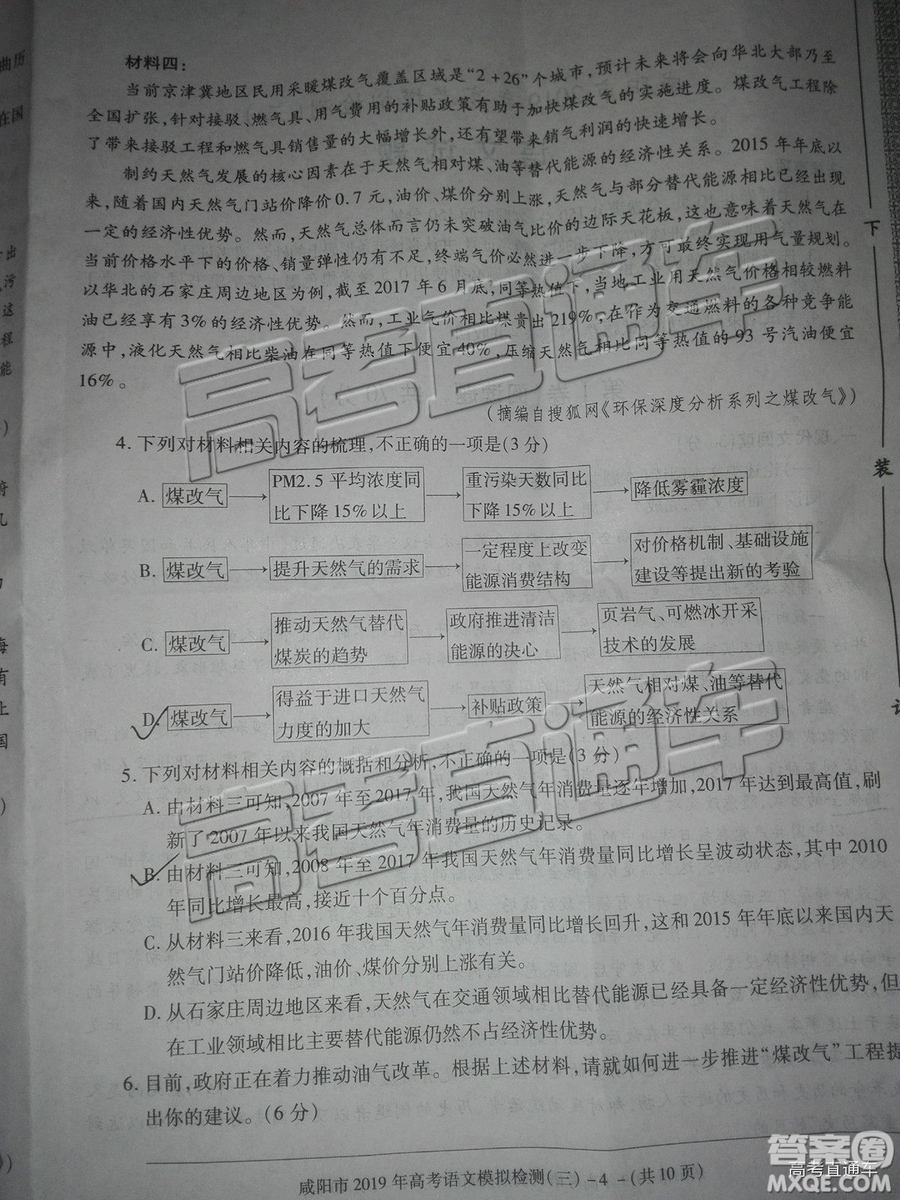 曲历
在国
材料四:
当前京津冀地区民用采暖煤改气覆盖区域是“2+26”个城市,预计未来将会向华北大部乃至
全国扩张,针对接驳、燃气具、用气费用的补贴政策有助于加快煤改气的实施进度。煤改气工程除
了带来接驳工程和燃气具销售量的大幅增长外,还有望带来销气利润的快速增长。
制约天然气发展的核心因素在于天然气相对煤、油等替代能源的经济性关系。2015年年底以
来,随着国内天然气门站价降价0.7元,油价、煤价分别上涨,天然气与部分替代能源相比已经出现
一定的经济性优势。然而,天然气总体而言仍未突破油气比价的边际天花板,这也意味着天然气在
当前价格水平下的价格、销量弹性仍有不足,终端气价必然进一步下降,方可最终实现用气量规划。
以华北的石家庄周边地区为例,截至2017年6月底,同等热值下,当地工业用天然气价格相较燃料
油已经享有3%的经济性优势。然而,工业气价相比煤贵出219%;在作为交通燃料的各种竞争能
源中,液化天然气相比柴油在同等热值下便宜40%,压缩天然气相比同等热值的93号汽油便宜
16%。
(摘编自搜狐网《环保深度分析系列之煤改气》)
4. 下列对材料相关内容的梳理,不正确的一项是(3分)
A. 煤改气 → PM2.5平均浓度同比下降15%以上 → 重污染天数同比下降15%以上 → 降低雾霾浓度
B. 煤改气 → 提升天然气的需求 → 一定程度上改变能源消费结构 → 对价格机制、基础设施建设等提出新的考验
C. 煤改气 → 推动天然气替代煤炭的趋势 → 政府推进清洁能源的决心 → 页岩气、可燃冰开采技术的发展
D. 煤改气 → 得益于进口天然气力度的加大 → 补贴政策 → 天然气相对煤、油等替代能源的经济性关系
5. 下列对材料相关内容的概括和分析,不正确的一项是(3分)
A. 由材料三可知,2007年至2017年,我国天然气年消费量逐年增加,2017年达到最高值,刷
新了2007年以来我国天然气年消费量的历史记录。
B. 由材料三可知,2008年至2017年我国天然气年消费量同比增长呈波动状态,其中2010
年同比增长最高,接近十个百分点。
C. 从材料三来看,2016年我国天然气年消费量同比增长回升,这和2015年年底以来国内天
然气门站价降低,油价、煤价分别上涨有关。
D. 从石家庄周边地区来看,天然气在交通领域相比替代能源已经具备一定经济性优势,但
在工业领域相比主要替代能源仍然不占经济性优势。
6. 目前,政府正在着力推动油气改革。根据上述材料,请就如何进一步推进“煤改气”工程提
出你的建议。(6分)
咸阳市2019年高考语文模拟检测(三)-4-(共10页)
下
装
订
高考直通车
高考直通车
答案圈
高考直通车
MXQE.COM